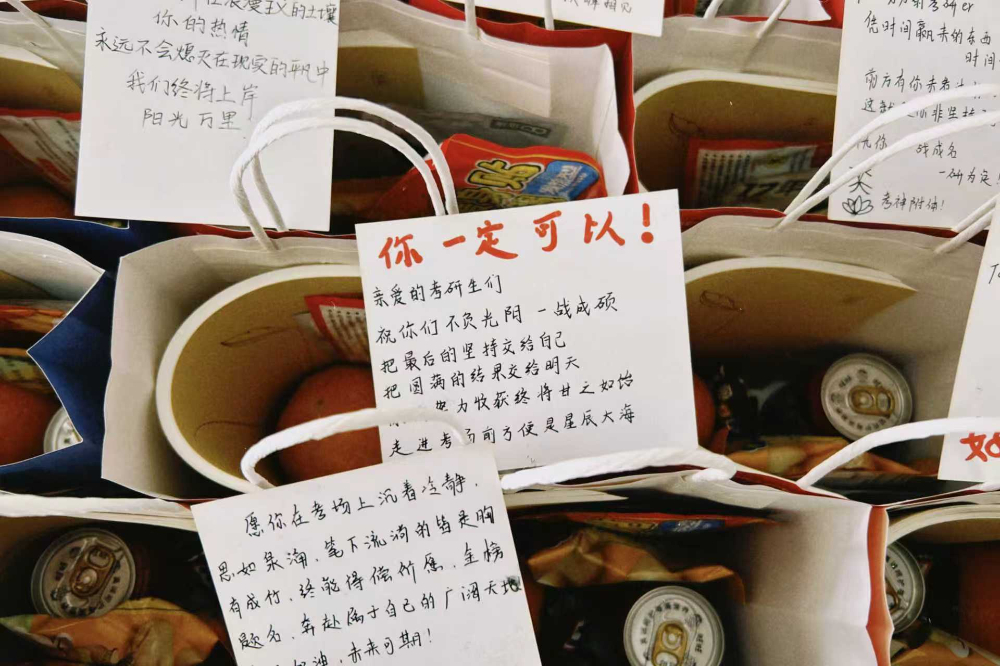 你的热情
永远不会熄灭在现实的平凡中
我们终将上岸
阳光万里
凭时间赢来的东西
时间
前方有你未来
一战成名
一研为定!
考神附体!
你一定可以!
亲爱的考研生们
祝你们不负光阳一战成硕
把最后的坚持交给自己
把圆满的结果交给明天
努力收获终将甘之如饴
走进考场前方便是星辰大海
愿你在考场上沉着冷静,
思如泉涌,笔下流淌的皆是胸
有成竹,终能得偿所愿,金榜
题名,奔赴属于自己的广阔天地
加油,未来可期!